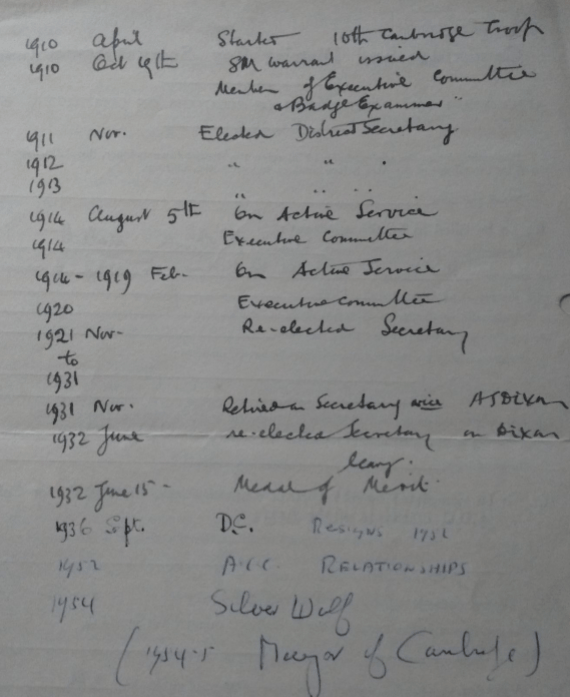 1910 April Started 10th Cambridge Troop
1910 Oct 19th SM warrant issued
Member of Executive Committee
& Badge Examiner
1911 Nov. Elected District Secretary
1912 " " "
1913 " " "
1914 August 5th On Active Service
1914 Executive Committee
1914 - 1919 Feb. On Active Service
1920 Executive Committee
1921 Nov - Re-elected Secretary
to
1931
1931 Nov. Retired as Secretary vice AS Dixon
1932 June re-elected Secretary on Dixon
leavg.
1932 June 15 - Medal of Merit.
1936 Sept. D.C. Resigns 1952
1952 A.C.C RELATIONSHIPS
1954 Silver Wolf
(1954-5 Mayor of Cambridge)